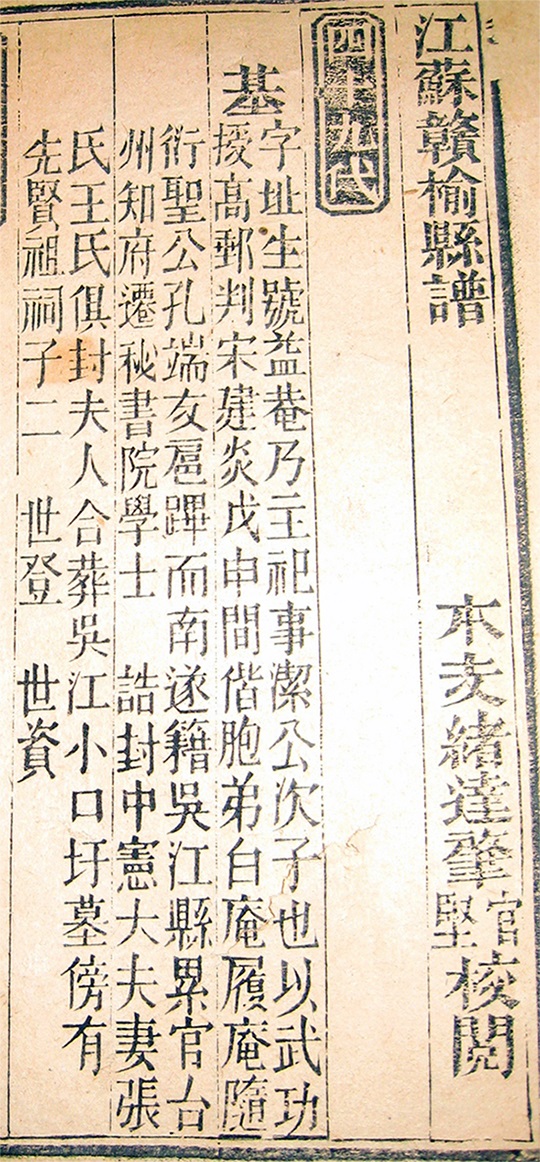 江蘇贛榆縣譜
本支緒達肇官堅校閱
四十九代
基
字址生號益菴乃主祀事潔公次子也以武功
授高郵判宋建炎戊申間偕胞弟白庵履庵隨
衍聖公孔端友扈蹕而南遂籍吳江縣累官台
州知府遷秘書院學士 誥封中憲大夫妻張
氏王氏俱封夫人合葬吳江小口圩墓傍有
先賢祖祠子二 世登 世資